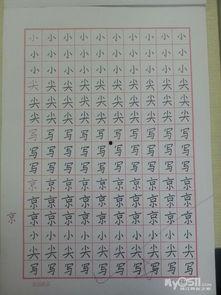 小小小小小小小小小小
小小小小小小小小小小
小小小小小小小小小小
尖尖尖尖尖尖尖尖尖尖
尖尖尖尖尖尖尖尖尖尖
尖尖尖尖尖尖尖尖尖尖
写写写写写写写写写写
写写写写写写写写写写
写写写写写写写写写写
京京京京京京京京京京
京京京京京京京京京京
京京京京京京京京京京
京
小小小小小小小小小小
尖尖尖尖尖尖尖尖尖尖
写写写写写写写写写写